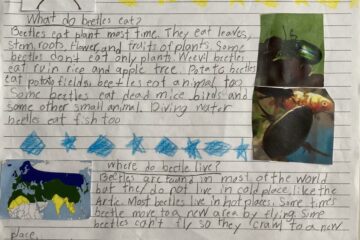 What do beetles eat?
Beetles eat plant most time. They eat leaves,
stem, roots, flower, and fruits of plants. Some
beetles don't eat only plants. Weevil beetles
eat ruin rice and apple tree. Potato beetles
eat potato fields, beetles eat animal too
Some beetles eat dead mice, birds and
some other small animal. Diving water
beetles eat fish too
where do beetle live?
Beetles are found in most of the world
but they do not live in cold place, like the
Artic. Most beetles live in hot places. Some times
beetle move to a new area by flying. Some
beetles can't fly so they crawl to a new
place.